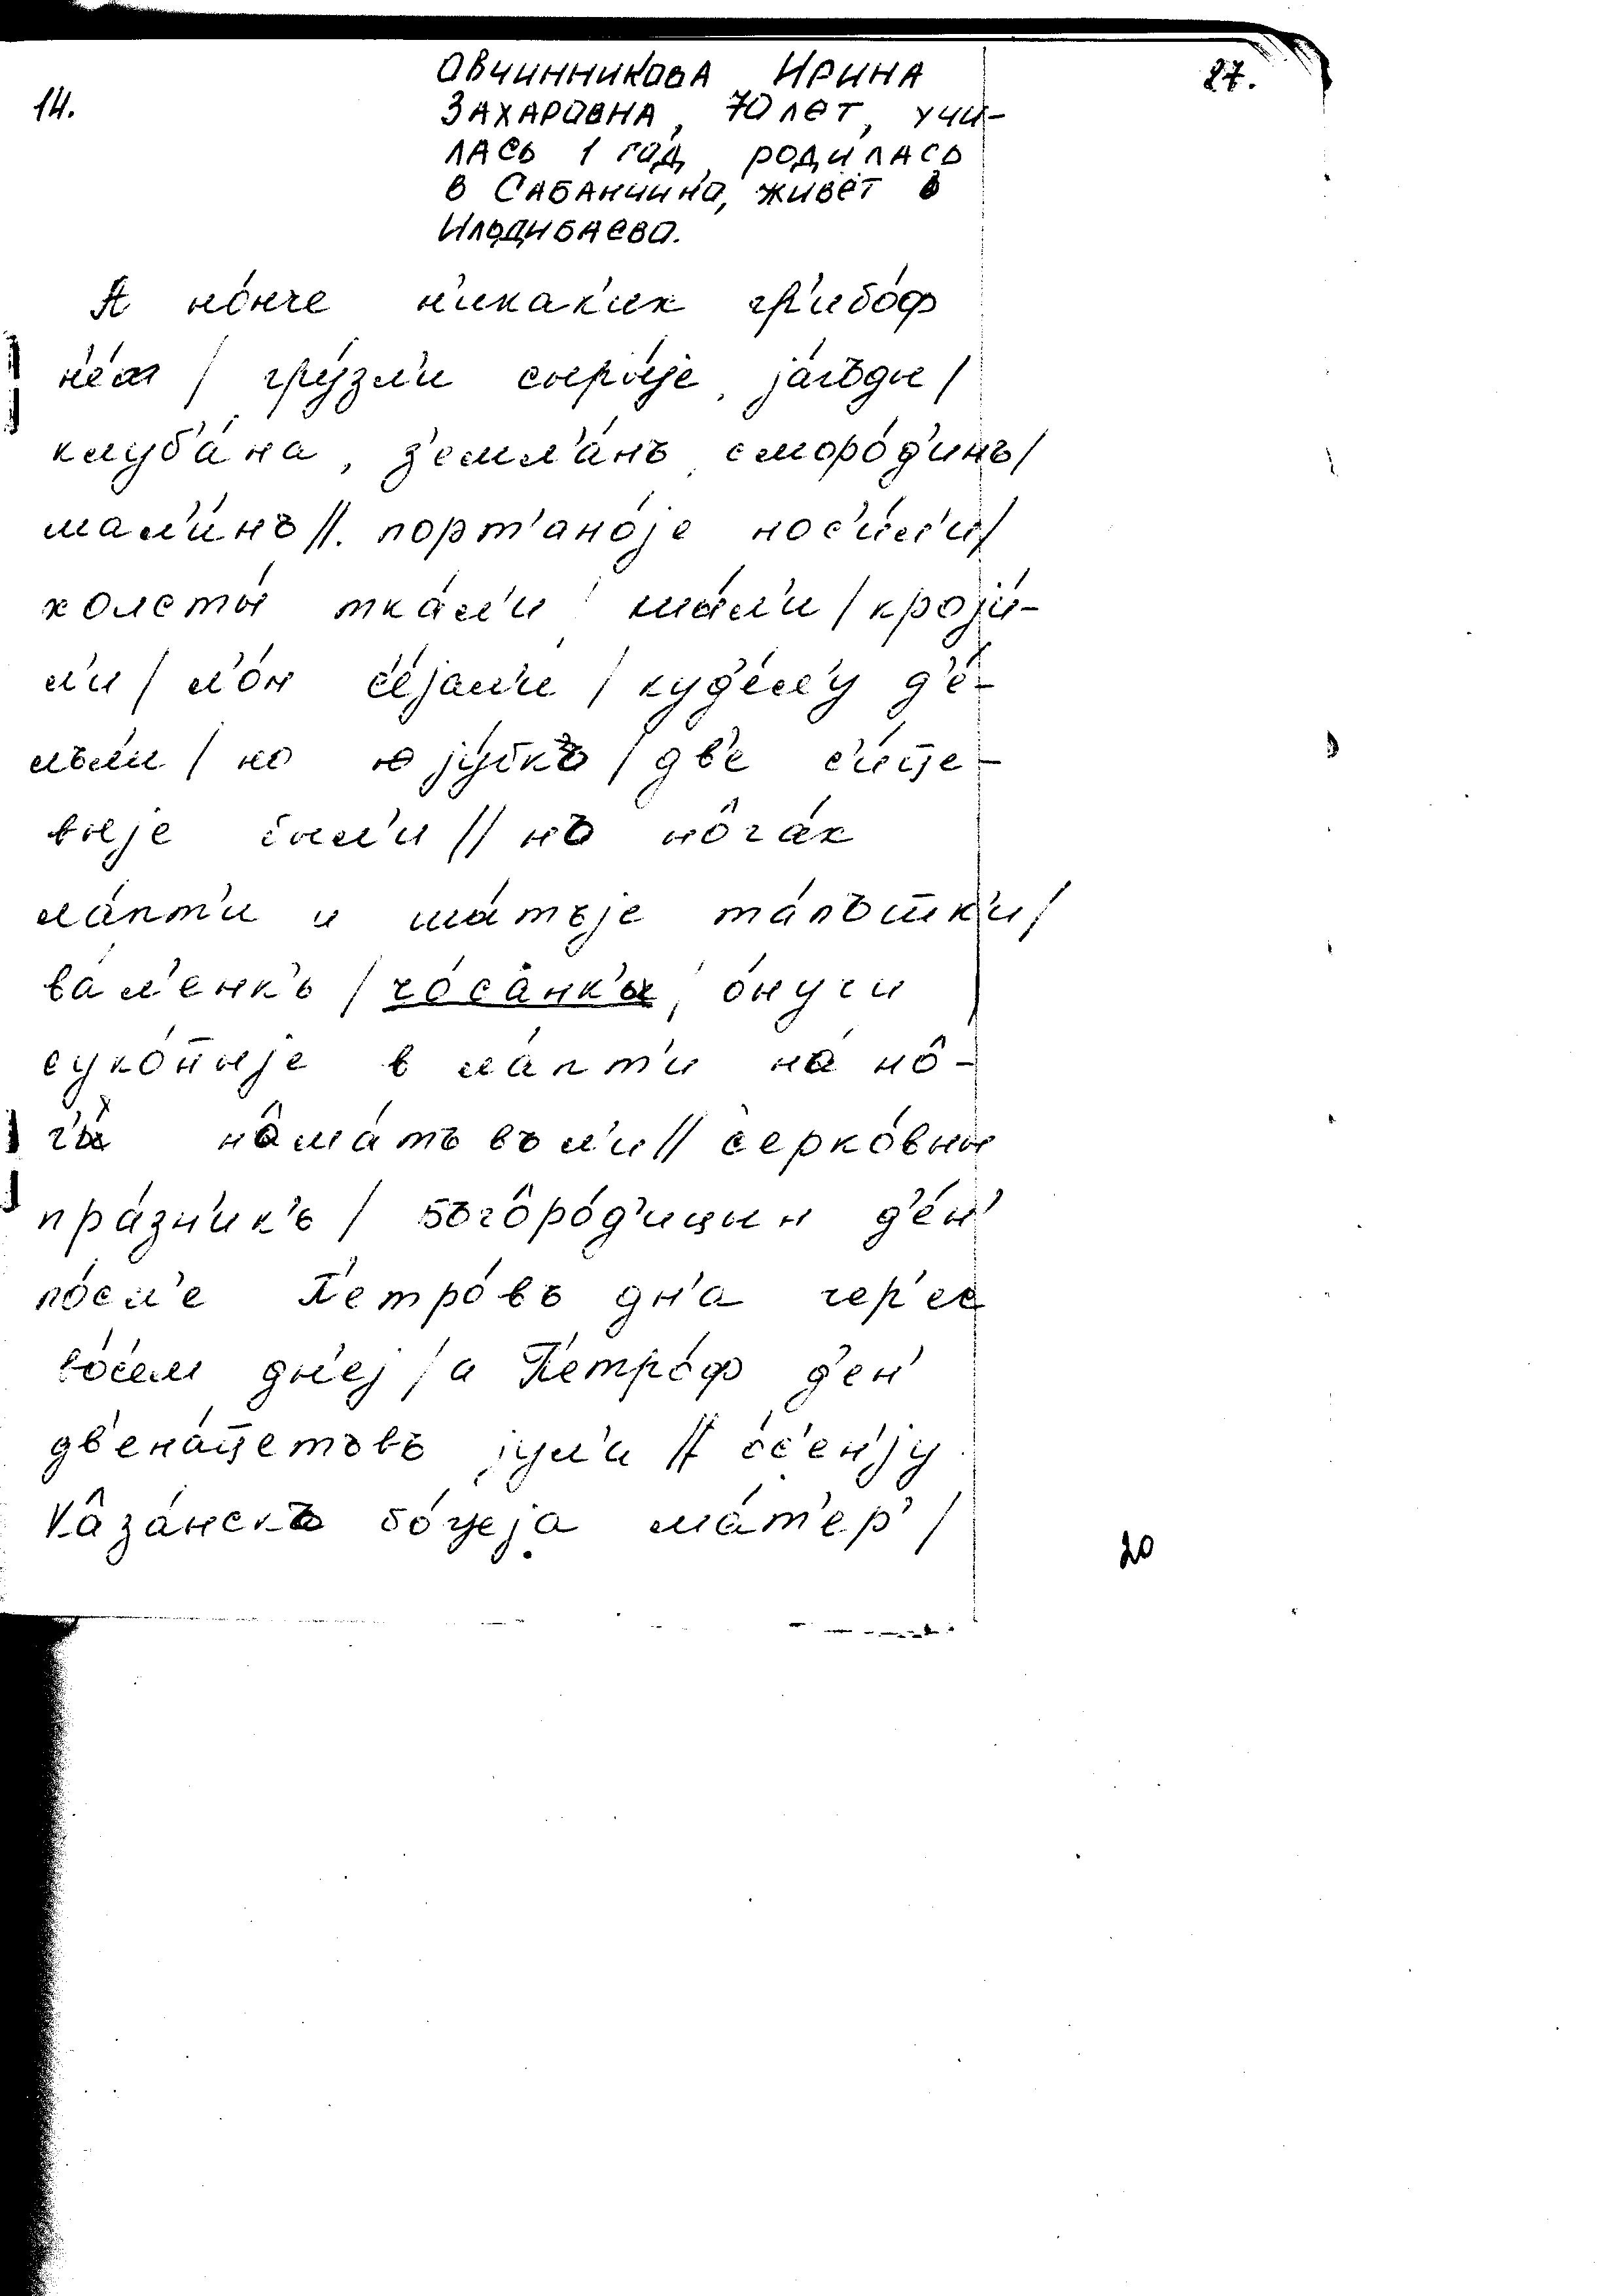 14.
27.
Овчинникова Ирина
Захаровна, 70 лет, учи-
лась 1 год, родилась
в Сабанчино, живёт в
Ильдибаево.
А но́нче н'икак'их гр'ибо́ф
н'е́т / гру́зл'и сыры́jе, jа́гъды /
клуб'а́на, з'емл'а́нъ, сморо́д'инъ /
мал'и́нъ //. порт'ано́jе нос'и́л'и /
холсты́ тка́л'и / шы́л'и / кроjи́-
л'и / л'о́н с'е́jал'и / куд'е́л'у д'е́-
лъл'и / но jу́бкъ / дв'е с'и́т̅це-
выjе был'и // нъ но̂га́х
ла́пт'и и ша́тъjе та́пътк'и /
ва́л'енк'ь / чо́са̂нк'ы / о́нучи
суко́н̅ыjе в ла́пт'и на́ но̂-
г'и на̂ма́тъвъл'и // с'ерко́вны
пра́зн'ик'ь / бъго̂ро́д'ицын д'е́н'
по́сл'е П'етро́въ дн'а чер'ес
во́с'ем дн'еj / а П'етро́ф д'ен'
дв'ена́т̅цетъвъ jул'и // о́с'ен'jу
Ка̂за́нскъ бо́жеjа ма́т'ер' /
20